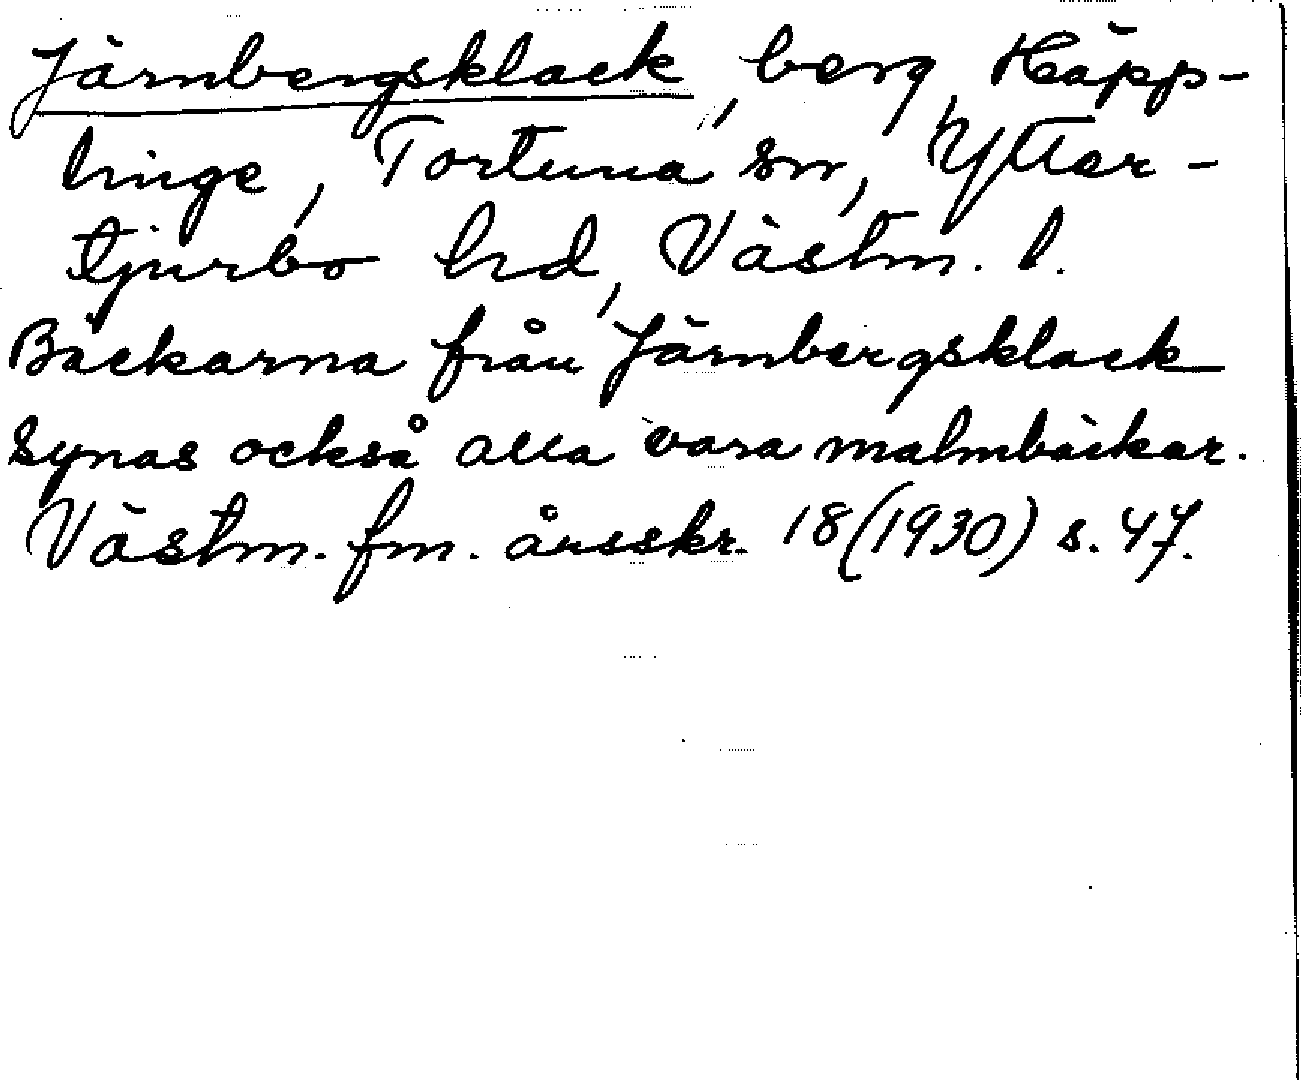 Järnbergsklack, berg, Häpp-
linge, Tortuna sn, Ytter-
tjurbo hd, Västm. l.
Bäckarna från Järnbergsklack
synas också alla vara malmbäckar.
Västm. fm. årsskr. 18 (1930) s. 47.